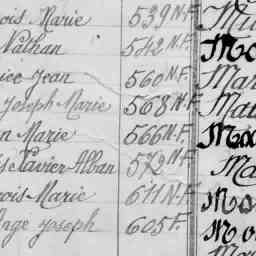 ois Marie 539 N.F.
Nathan 542 N.F.
ice Jean 560 N.F. Mar
Joseph-Marie 568 N.F. Mau
n Marie 566 N.F.
s Xavier Alban 572 N.F. Ma
ois-Marie 611 N.F.
Ange Joseph 605 F.